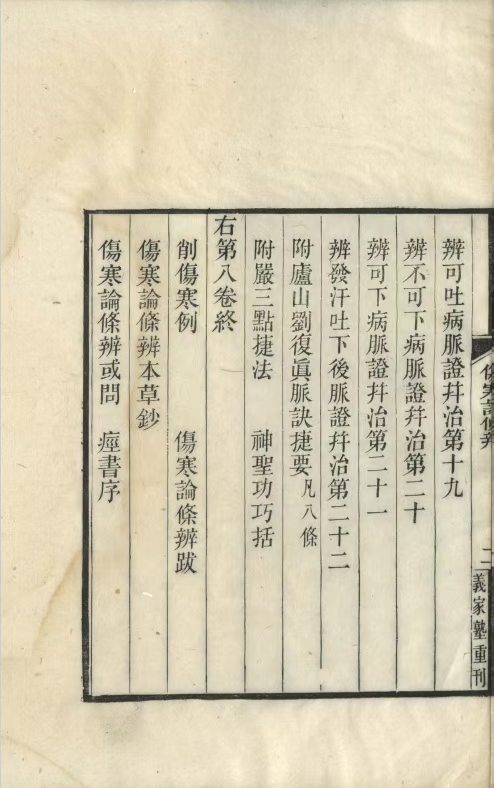 傷寒論條辨
二
義家塾重刊
辨可吐病脈證幷治第十九
辨不可下病脈證幷治第二十
辨可下病脈證幷治第二十一
辨發汗吐下後脈證幷治第二十二
附廬山劉復眞脈訣捷要凡八條
附嚴三點捷法 神聖功巧括
右第八卷終
削傷寒例 傷寒論條辨跋
傷寒論條辨本草鈔
傷寒論條辨或問 痙書序